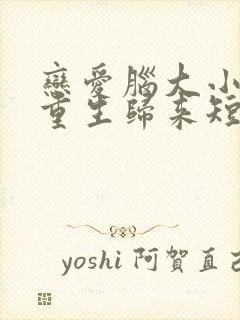 戀愛腦大小
重生歸來短
yoshi 阿賀直己